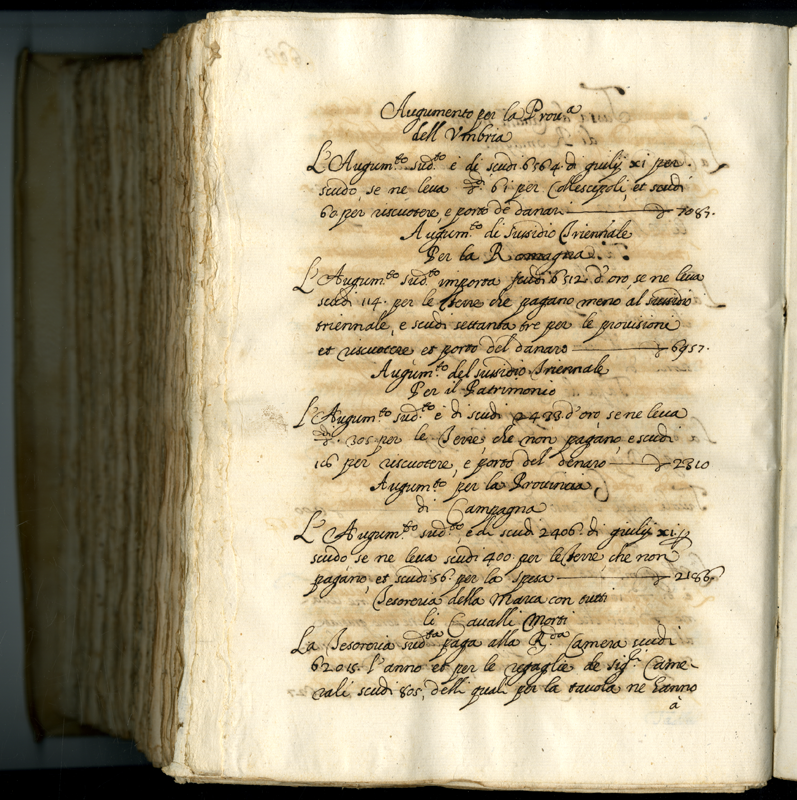 Augumento per la Prou.a
dell Vmbria
L'Augum.to sud.to è di scudi 6564. di giulij xi per
scudo, se ne leua 61 per Collescipoli, et scudi
60 per riscuotere, e porto de danari — 7085.
Augum.to di sussidio Triennale
Per la Romagna
L'Augum.to sud.to importa scudi 6512 d'oro se ne leua
scudi 114. per le Terre che pagano meno al sussidio
triennale, e scudi settanta tre per le prouisioni
et riscuotere et porto del danaro — 6957.
Augum.to del sussidio Triennale
Per il Patrimonio
L'Augum.to sud.to è di scudi 2433 d'oro se ne leua
305 per le Terre che non pagano, e scudi
116 per riscuotere, e porto del denaro — 2310
Augum.to per la Prouincia
di Campagna
L'Augum.to sud.to è di scudi 2406. di giulij xi p
scudo se ne leua scudi 400 per le Terre che non
pagano, et scudi 56. per la spesa — 2186
Tesoreria della Marca con tutti
li Caualli Morti
La Tesoreria sud.ta paga alla R.da Camera scudi
62015. l'anno et per le regaglie de sig.ri Came-
rali scudi 805, delli quali per la tauola ne hanno
à